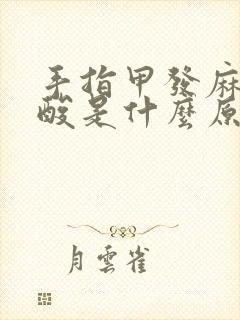 手指甲發麻
酸是什麼原
月雲雀